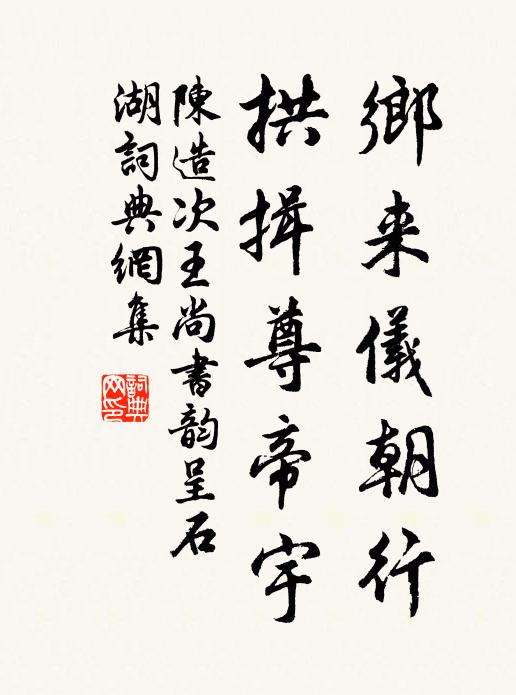 鄉来儀朝行
拱揖尊帝宇
陳造次王尚書韵呈石
湖詞典網集
詞典
网印